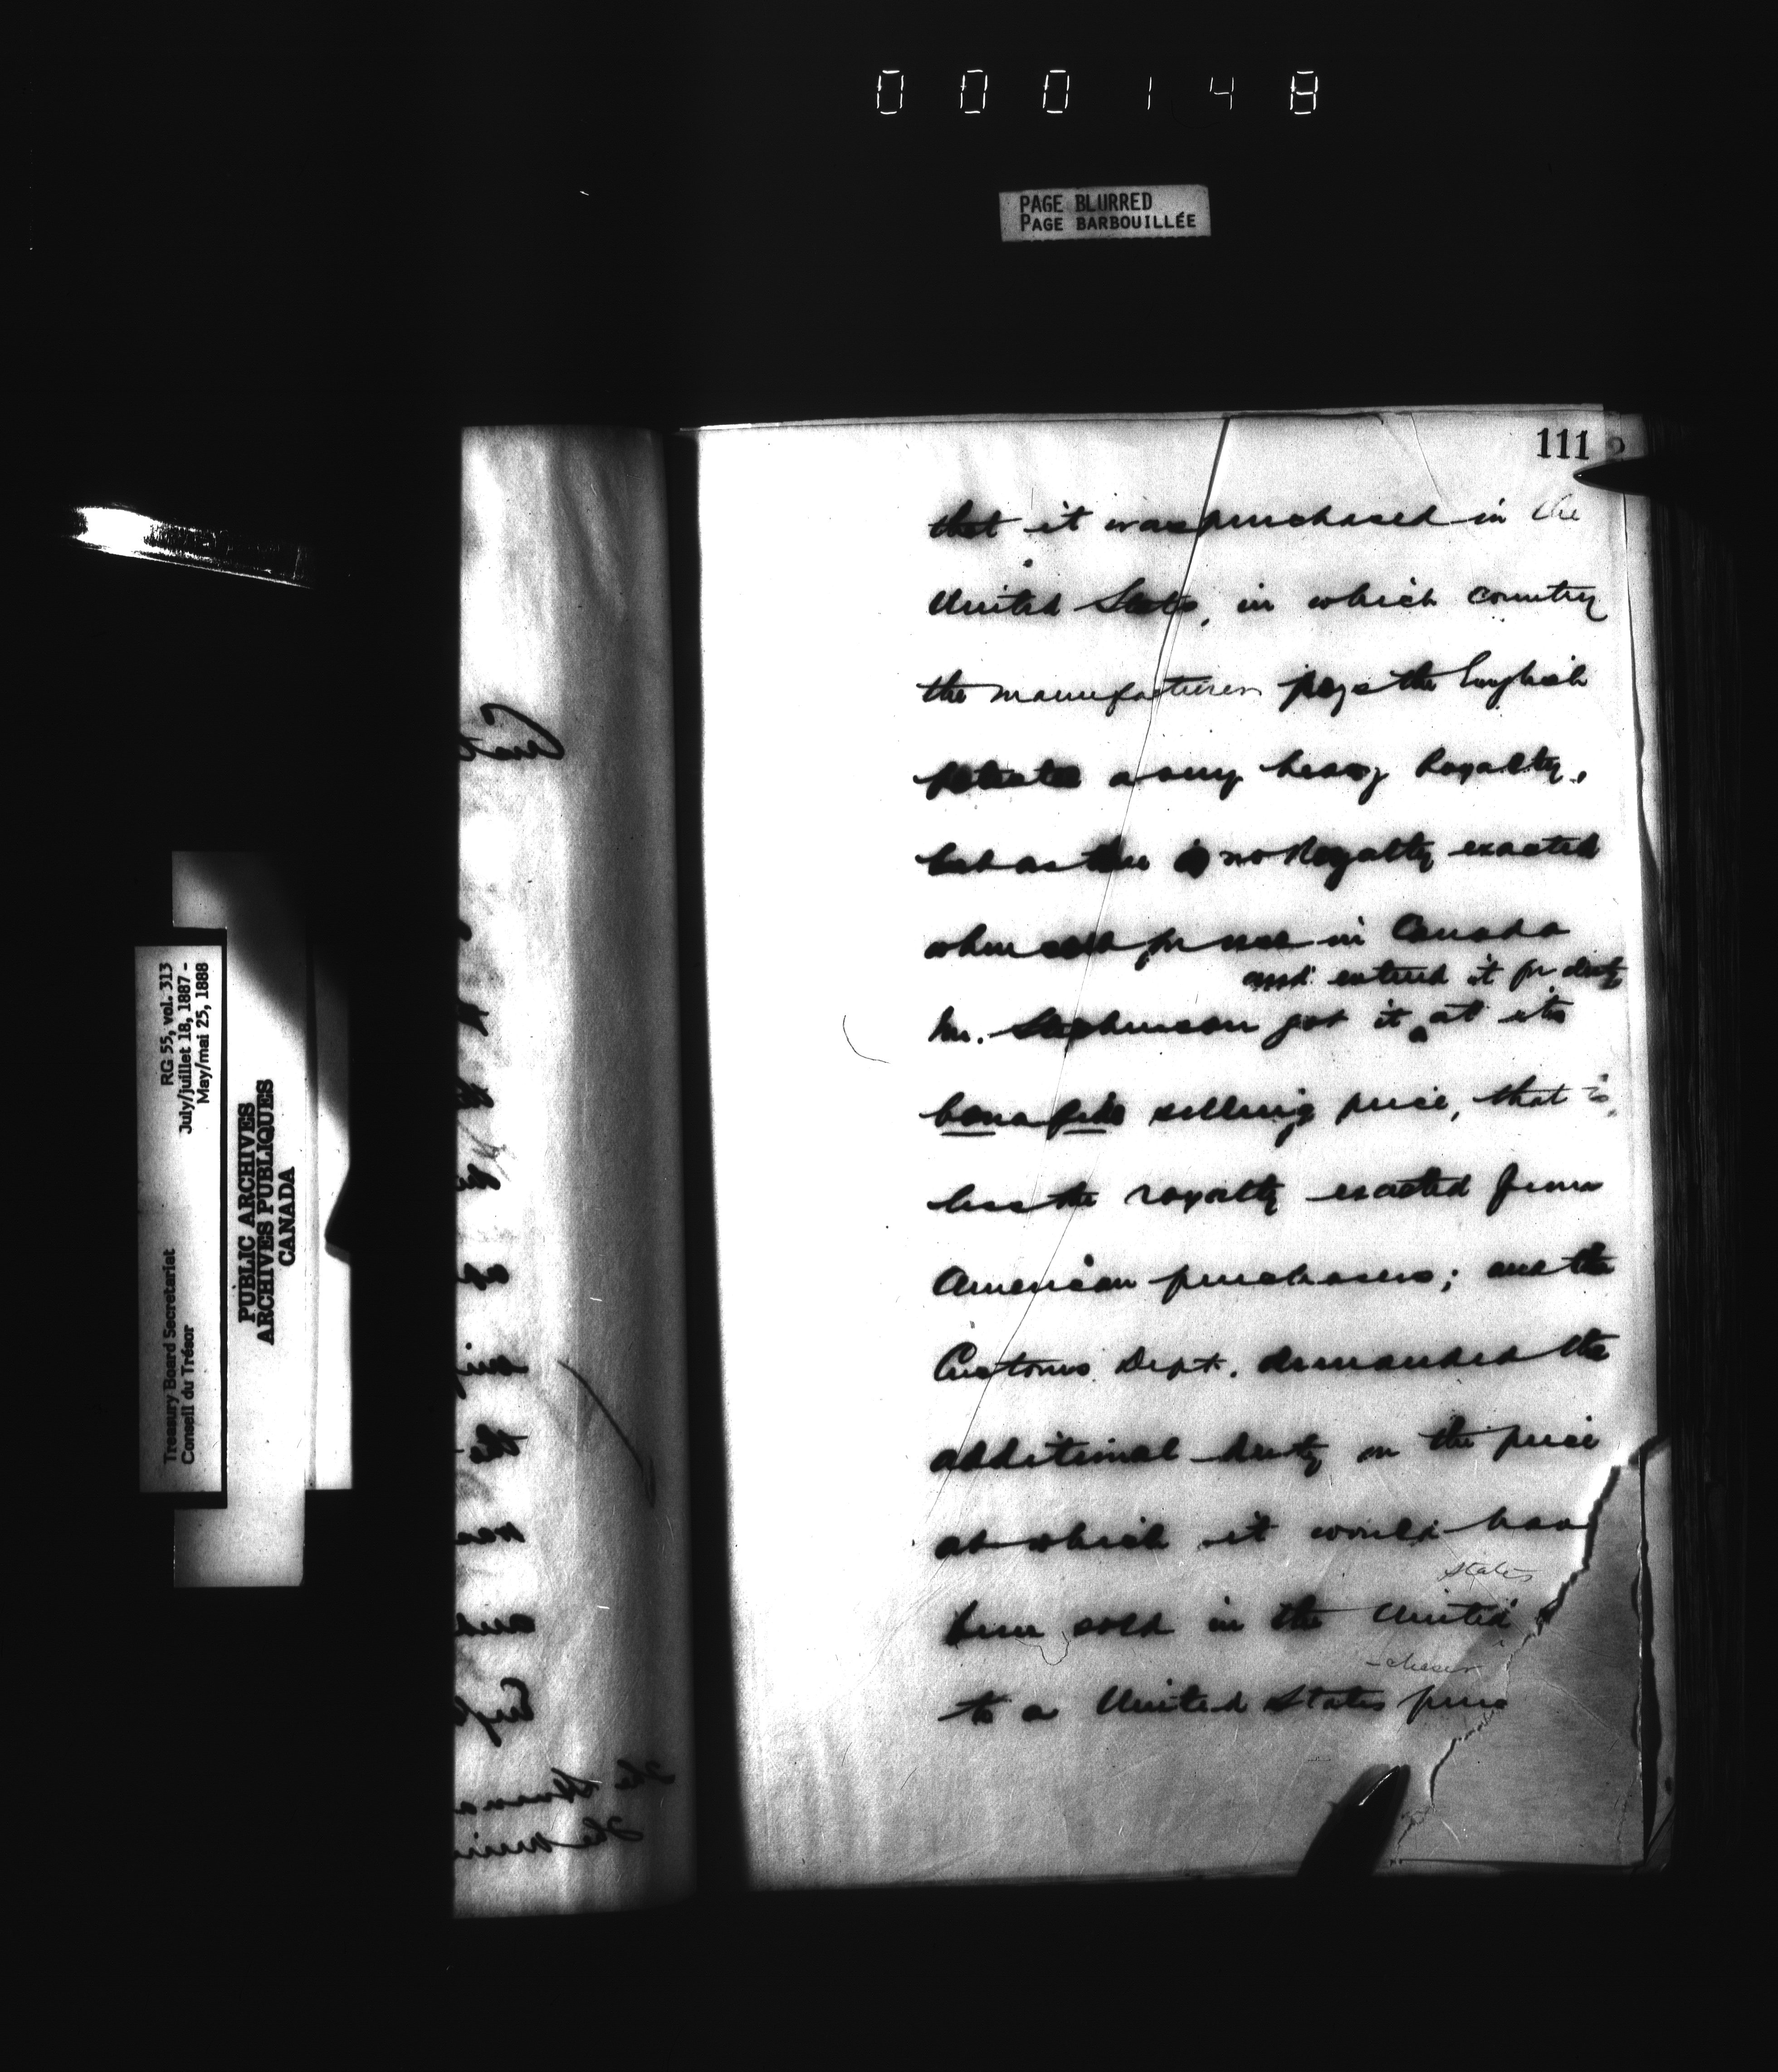 000148
PAGE BLURRED
PAGE BARBOUILLÉE
111
that it was purchased in the
United States, in which country
the manufacturer pays the English
patentee a very heavy Royalty,
but as there is no Royalty exacted
when sold for use in Canada
and entered it for duty
Mr. Stephenson got it ^ at its
bona fide selling price, that is,
less the royalty exacted from
American purchasers; and the
Customs Dept. demanded the
additional duty on the price
at which it would have
States
been sold in the United
-chaser
to a United States pur
RG 55, vol. 313
July/juillet 18, 1887 -
May/mai 25, 1888
Treasury Board Secretariat
Conseil du Trésor
PUBLIC ARCHIVES
ARCHIVES PUBLIQUES
CANADA